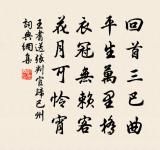 回首三巴曲
平生萬里橋
衣冠無賴客
花月可憐宵
王翥送張判官歸巴州
詞典網集